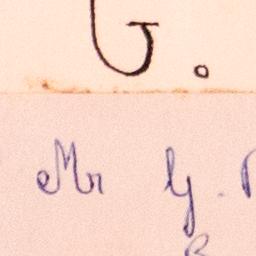 G.
Mr G.